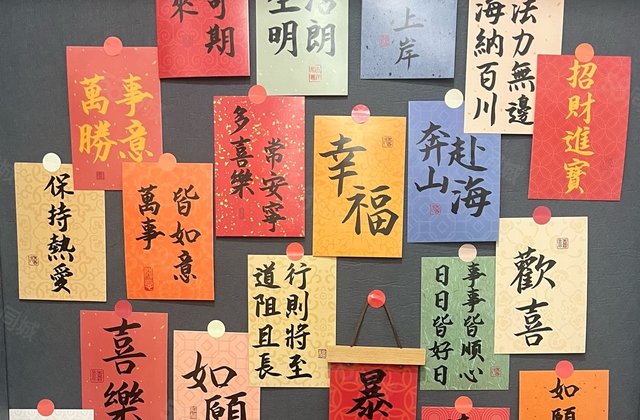 來
可期
生活
明朗
上岸
海納百川
法力無邊
萬事
勝意
多喜樂
常安寧
幸福
奔赴
山海
招財進寶
保持熱愛
萬事
皆如意
道阻且長
行則將至
日日皆好日
事事皆順心
歡喜
喜樂
如願
暴
如願